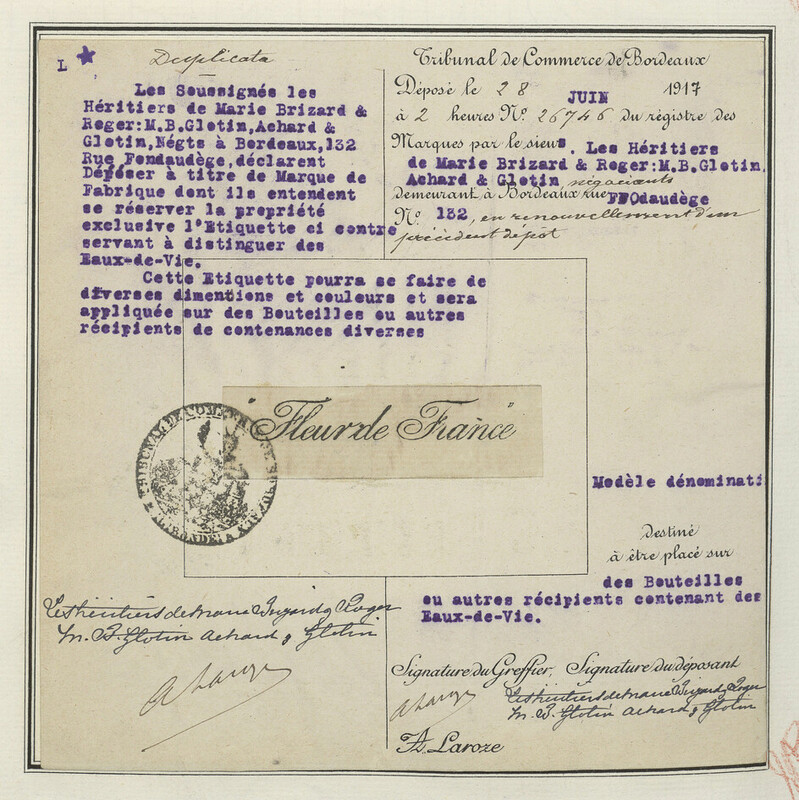 L
Duplicata
Les Soussignés les
Héritiers de Marie Brizard &
Roger:M.B.Glotin,Achard &
Glotin,Négts à Bordeaux,132
Rue Fondaudège,déclarent
Déposer à titre de Marque de
Fabrique dont ils entendent
se réserver la propriété
exclusive l'Etiquette ci contre
servant à distinguer des
Eaux-de-Vie.
Cette Etiquette pourra se faire de
diverses dimentions et couleurs et sera
appliquée sur des Bouteilles ou autres
récipients de contenances diverses
Tribunal de Commerce de Bordeaux
Déposé le 28 JUIN 1917
à 2 heures Nº 26746 du régistre des
Marques par le sieur. Les Héritiers
de Marie Brizard & Roger:M.B.Glotin,
Achard & Glotin négociants
demeurant à Bordeaux rue Fodaudège
Nº 132, en renouvellement d'un
précédent dépôt
"Fleur de France"
TRIBUNAL DE COMMERCE DE BORDEAUX
(GIRONDE)
Modèle dénominati
destiné
à être placé sur
des Bouteilles
ou autres récipients contenant des
Eaux-de-Vie.
Les héritiers de Marie Brizard & Roger
M. B. Glotin Achard & Glotin
A Laroze
Signature du Greffier, Signature du déposant
A Laroze
Les héritiers de Marie Brizard & Roger
M. B. Glotin Achard & Glotin
A. Laroze